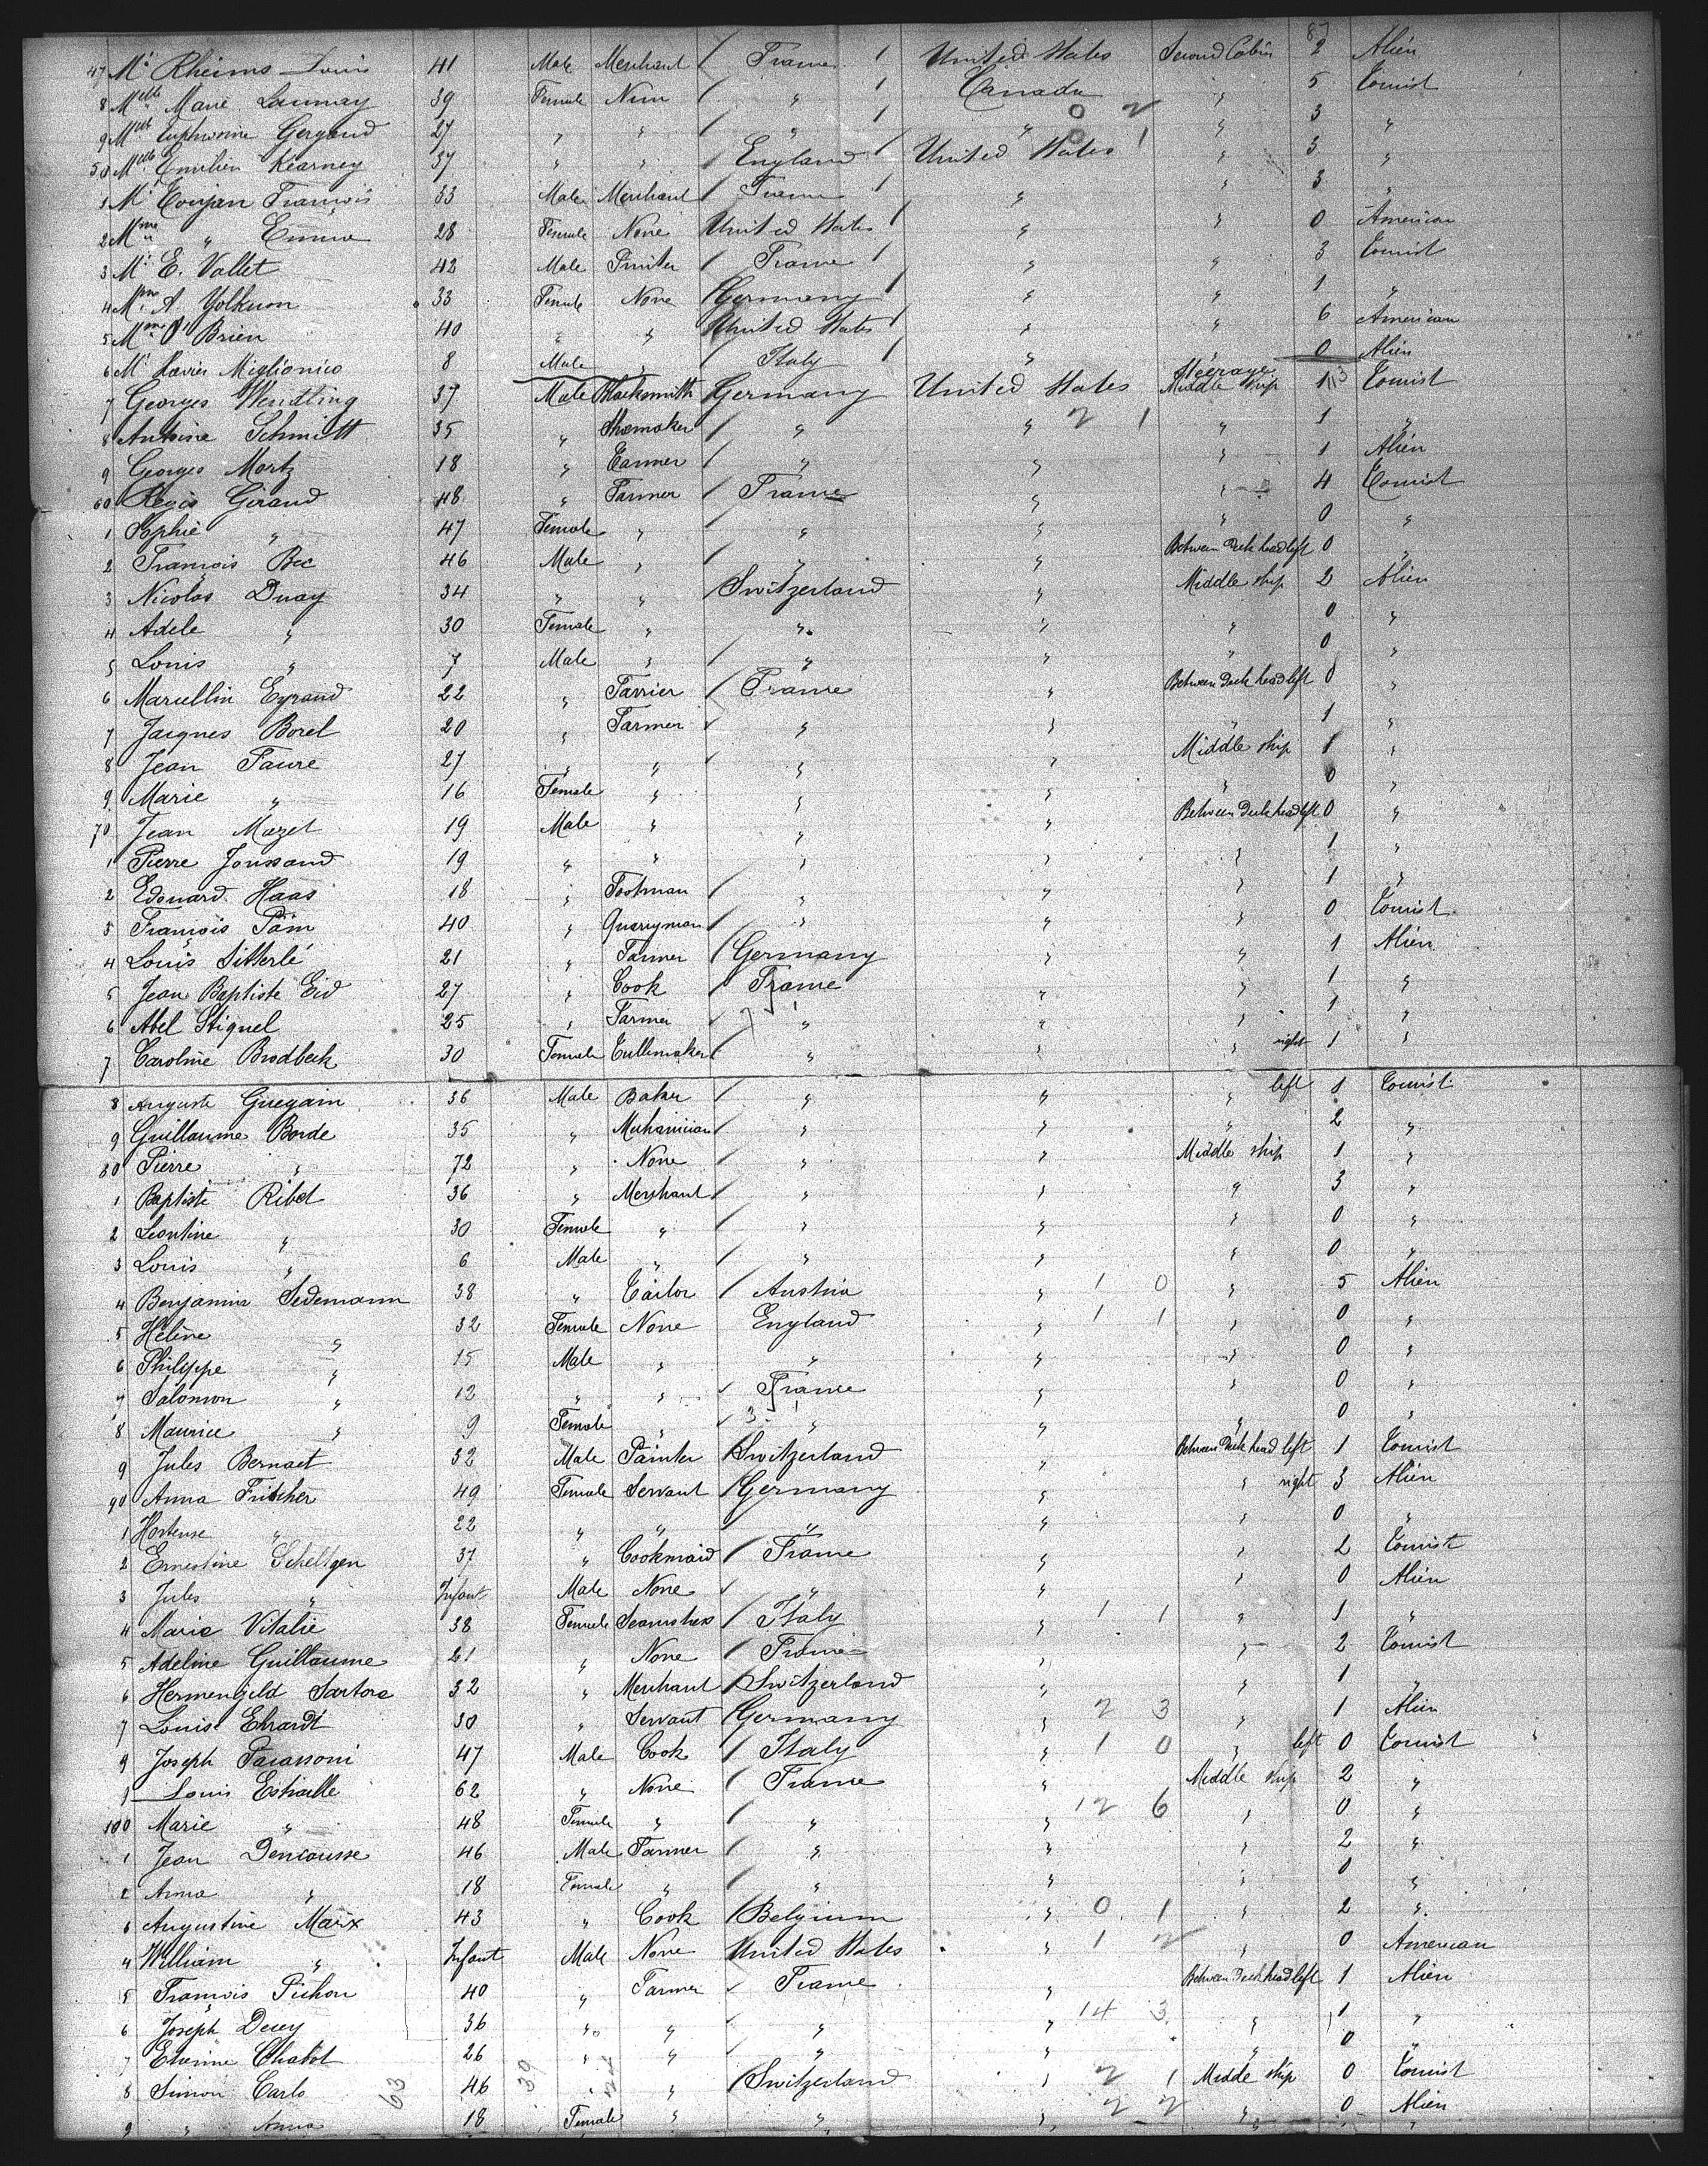 87
47 Mr Rheims Louis 41 Male Merchant / France / United States Second Cabin 2 Alien
8 Melle Marie Launay 39 Female Nun / " / Canada " 5 Tourist
9 Melle Gergaud 27 " " / " / " 0 2 " 3 "
50 Melle Kearney 37 " " / England / United States 0 1 " 3 "
1 Mr François 33 Male Merchant / France / " " 3 "
2 Mme " Emma 28 Female None United States / " " 0 American
3 Mr E. Vallet 42 Male / France / " " 3 Tourist
4 Mme A. Yolkmon 33 Female None / Germany / " " 1 "
5 Mme O'Brien 40 " " United States / " " 6 American
6 Mr Xavier Miglionico 8 Male " / Italy / " " 0 Alien
7 Georges Wendling 37 Male Blacksmith Germany United States Steerage Middle ship 1 113 Tourist
8 Antoine Schmitt 35 " Shoemaker / " " 2 1 " 1 "
9 Georges Martz 18 " / " " " 1 Alien
60 Regis Giraud 48 " Farmer / France " " 4 Tourist
1 Sophie " 47 Female " / " " " 0 "
2 François Bec 46 Male " / " " Between Deck head left 0 "
3 Nicolas Duay 34 " " / Switzerland " Middle ship 2 Alien
4 Adele " 30 Female " " " " 0 "
5 Louis " 7 Male " / " " " 0 "
6 Marcellin Eyraud 22 " Farrier / France " Between Deck head left 0 "
7 Jacques Borel 20 " Farmer / " " " 1 "
8 Jean Faure 27 " " / " " Middle ship 1 "
9 Marie " 16 Female " " " " 0 "
70 Jean Mazel 19 Male " " " Between Deck head left 0 "
1 Pierre Joussaud 19 " " " " " 1 "
2 Edouard Haas 18 " Footman / " " " 1 "
3 François Paim 40 " Quarryman / " " " 0 Tourist
4 Louis Sitterlé 21 " Farmer / Germany " " 1 Alien
5 Jean Baptiste Eid 27 " Cook / France " " 1 "
6 Abel Stiquel 25 " Farmer / " " " 1 "
7 Caroline Brodbeck 30 Female Tullemaker / " " " right 1 "
8 Auguste Guegain 36 Male Baker / " " " left 1 Tourist
9 Guillaume Borde 35 " Mechanician / " " " 2 "
80 Pierre " 72 " None / " " Middle ship 1 "
1 Baptiste Ribet 36 " Merchant / " " " 3 "
2 Leontine " 30 Female " / " " " 0 "
3 Louis " 6 Male " / " " " 0 "
4 Benjamin Sedemann 38 " Tailor / Austria " 1 0 " 5 Alien
5 Hélène " 32 Female None England " 1 1 " 0 "
6 Philippe " 15 Male " " " " 0 "
7 Salomon " 12 " " / France " " 0 "
8 Maurice " 9 Female " / " " " 0 "
9 Jules Bernaet 32 Male Painter / Switzerland " Between Deck head left 1 Tourist
90 Anna Fritcher 49 Female Servant / Germany " " right 3 Alien
1 Hortense " 22 " " " " " 0 "
2 Ernestine Scheltgen 37 " Cookmaid / France " " 2 Tourist
3 Jules " Infant Male None / " " " 0 Alien
4 Marie Vitalie 38 Female Seamstress / Italy " 1 1 " 1 "
5 Adeline Guillaume 21 " None / France " " 2 Tourist
6 Hermengild Sartore 32 " Merchant / Switzerland " " 1 "
7 Louise Ehrardt 30 " Servant / Germany " 2 3 " 1 Alien
9 Joseph Pacassoni 47 Male Cook / Italy " 1 0 " left 0 Tourist
9 Louis Estralle 62 " None / France " Middle ship 2 "
100 Marie " 48 Female " / " " 12 6 " 0 "
1 Jean Dencausse 46 Male Farmer / " " " 2 "
2 Anna " 18 Female " / " " " 0 "
6 Augustine Marix 43 " Cook / Belgium " 0 1 " 2 "
4 William " Infant Male None United States " 1 2 " 0 American
5 François Pichon 40 " Farmer / France " Between Deck head left 1 Alien
6 Joseph Decey 36 " " " " 14 3 " 1 "
7 Etienne Chabot 26 " " " " " 0 "
8 Simon Carlo 46 " " / Switzerland " 2 1 Middle ship 0 Tourist
9 " Anna 18 Female " " " 2 2 " 0 Alien
63 39